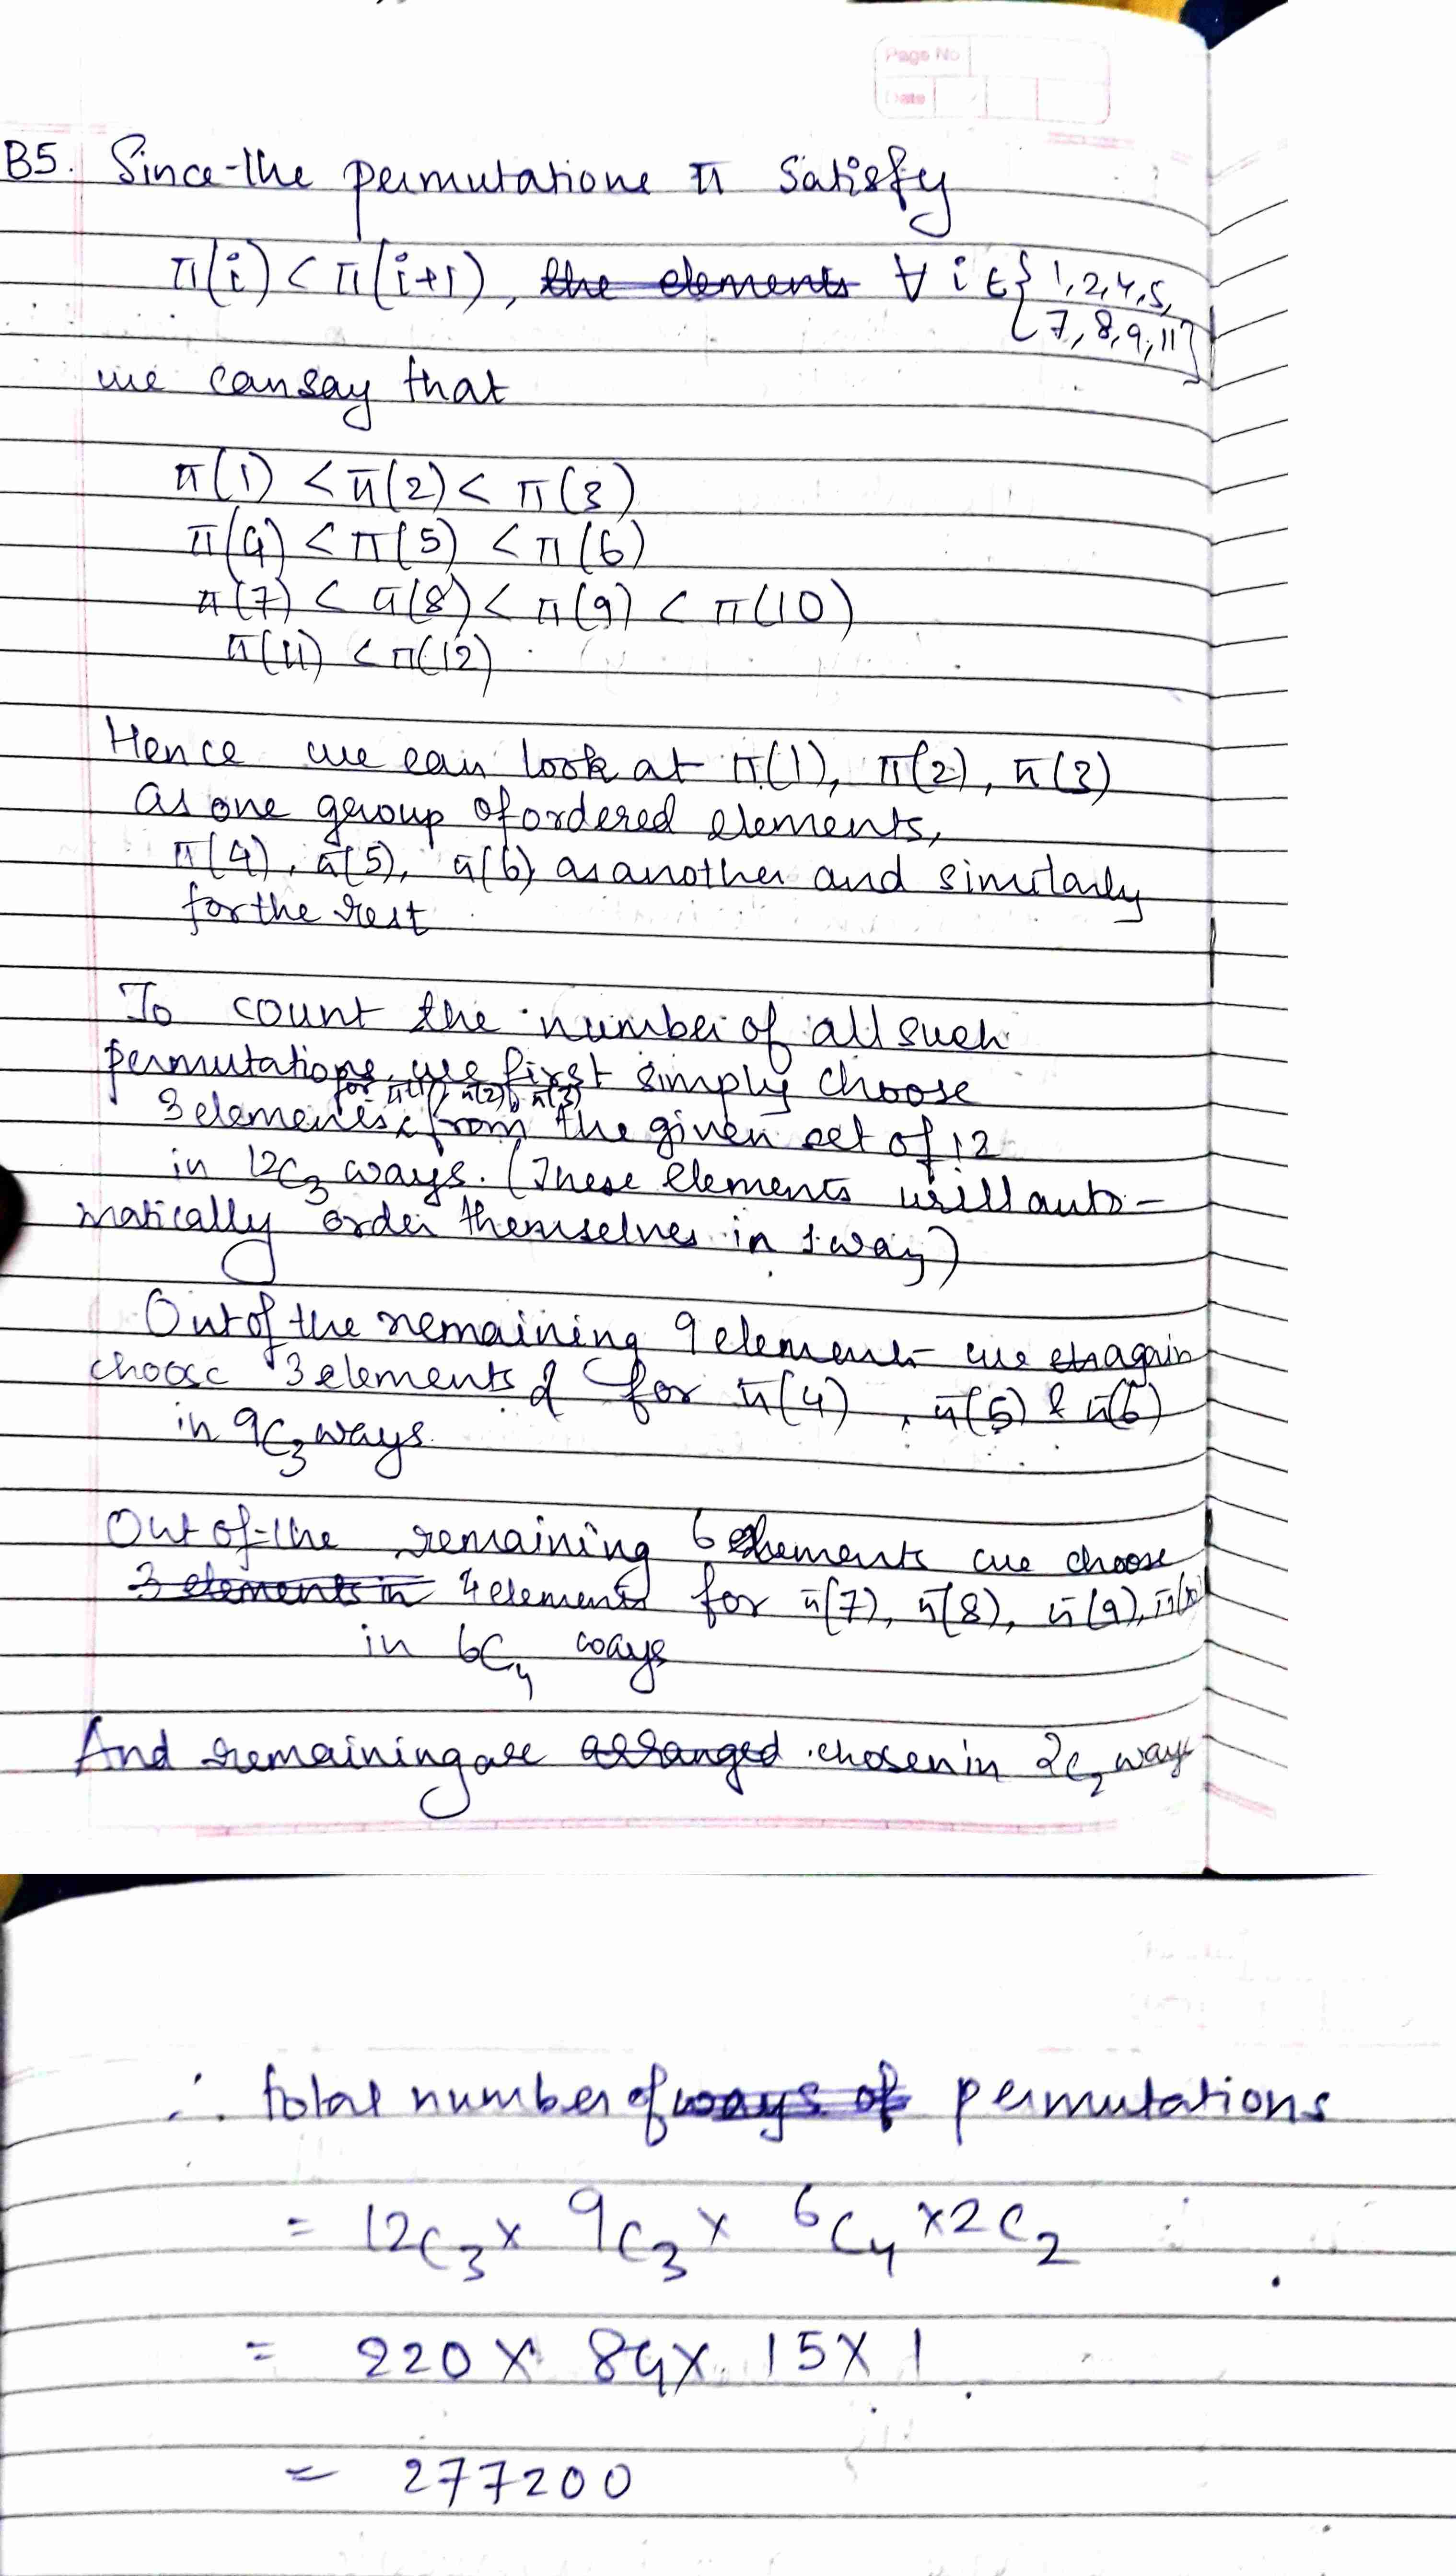 Page No
Date
B5. Since the permutations π satisfy
π(i) < π(i+1), the elements ∀ i ∈ {1,2,4,5,
7,8,9,11}
we can say that
π(1) < π(2) < π(3)
π(4) < π(5) < π(6)
π(7) < π(8) < π(9) < π(10)
π(11) < π(12)
Hence we can look at π(1), π(2), π(3)
as one group of ordered elements,
π(4), π(5), π(6) as another and similarly
for the rest
To count the number of all such
permutations, we first simply choose
for π(1), π(2), π(3)
3 elements from the given set of 12
in 12C3 ways. (These elements will auto-
matically order themselves in 1 way)
Out of the remaining 9 elements we again
choose 3 elements for π(4), π(5) & π(6)
in 9C3 ways.
Out of the remaining 6 elements we choose
3 elements in 4 elements for π(7), π(8), π(9), π(10)
in 6C4 ways
And remaining are arranged chosen in 2C2 ways
∴ total number of ways of permutations
= 12C3 × 9C3 × 6C4 × 2C2
= 220 × 84 × 15 × 1
= 277200